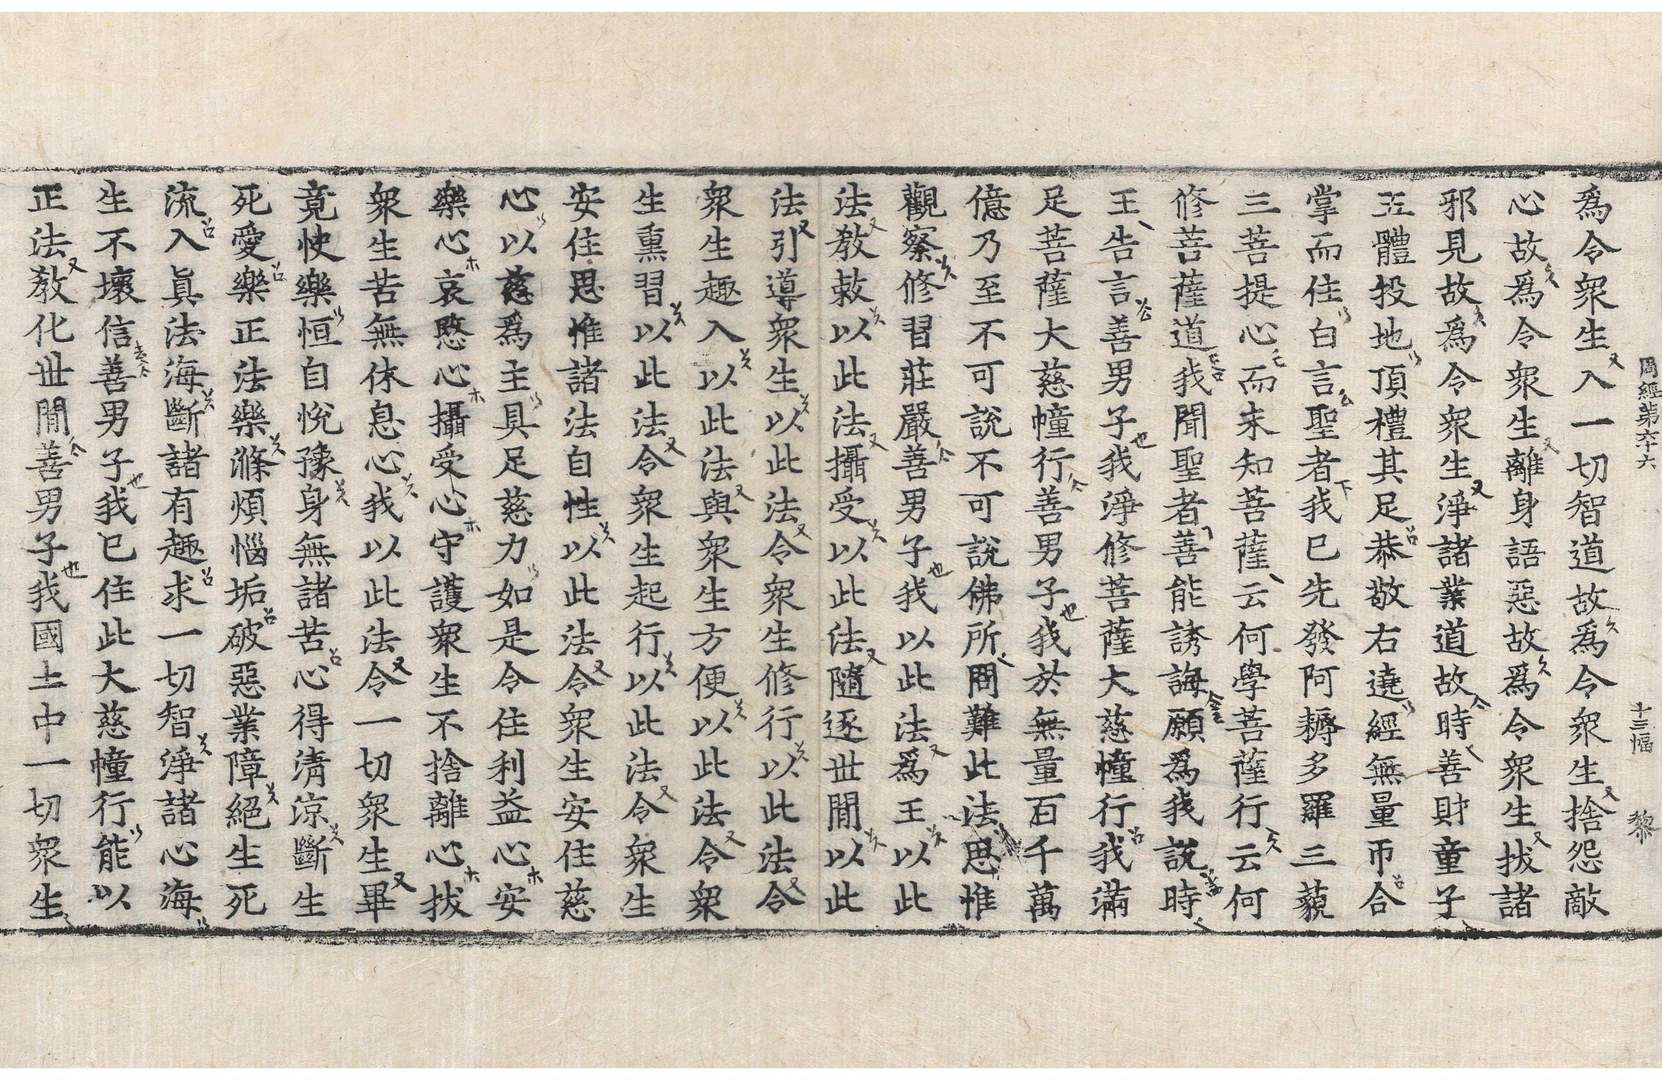 周經第六十六　十三幅　黎
爲令衆生入一切智道故爲令衆生捨怨敵
心故爲令衆生離身語惡故爲令衆生拔諸
邪見故爲令衆生淨諸業道故時善財童子
五體投地頂禮其足恭敬右遶經無量帀合
掌而住白言聖者我已先發阿耨多羅三藐
三菩提心而未知菩薩云何學菩薩行云何
修菩薩道我聞聖者善能誘誨願爲我說時
王告言善男子我淨修菩薩大慈幢行我滿
足菩薩大慈幢行善男子我於無量百千萬
億乃至不可說不可說佛所問難此法思惟
觀察修習莊嚴善男子我以此法爲王以此
法敎敕以此法攝受以此法隨逐世閒以此
法引導衆生以此法令衆生修行以此法令
衆生趣入以此法與衆生方便以此法令衆
生熏習以此法令衆生起行以此法令衆生
安住思惟諸法自性以此法令衆生安住慈
心以慈爲主具足慈力如是令住利益心安
樂心哀愍心攝受心守護衆生不捨離心拔
衆生苦無休息心我以此法令一切衆生畢
竟快樂恒自悅豫身無諸苦心得淸涼斷生
死愛樂正法樂滌煩惱垢破惡業障絕生死
流入眞法海斷諸有趣求一切智淨諸心海
生不壞信善男子我已住此大慈幢行能以
正法敎化世閒善男子我國土中一切衆生